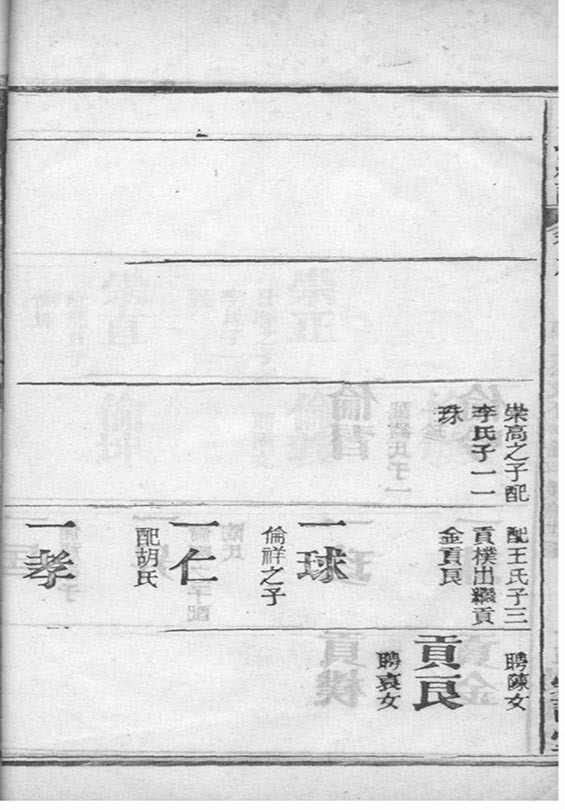 崇高之子配
李氏子一一
珠
配王氏子三
貢樸出繼貢
金貢良
一球
倫祥之子
一仁
配胡氏
一孝
聘陳女
貢良
聘袁女